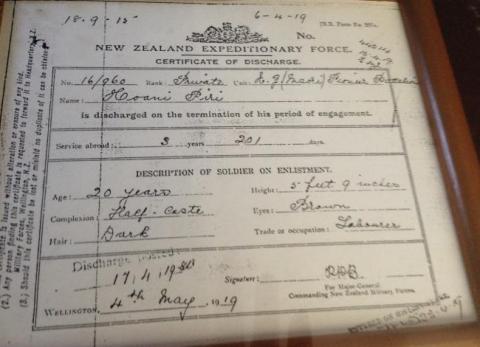 18-9-15
6-4-19
[N.Z. Form No.
No.
NEW ZEALAND EXPEDITIONARY FORCE.
CERTIFICATE OF DISCHARGE.
No. 16/960 Rank: Private Unit: N.Z. (Maori) Pioneer Battalion
Name: Hoani Piri
is discharged on the termination of his period of engagement.
Service abroad: 3 years 201 days.
DESCRIPTION OF SOLDIER ON ENLISTMENT.
Age: 20 years Height: 5 feet 9 inches
Complexion: Half-Caste Eyes: Brown
Hair: Dark Trade or occupation: Labourer
Discharge
17.4.19
Signature:
For Major-General
Commanding New Zealand Military Forces.
WELLINGTON, 4th May, 1919
(2.) Any person finding this certificate is requested to forward it to Headquarters, N.Z. Military Forces, Wellington, N.Z.
(3.) Should this certificate be lost or mislaid no duplicate of it can be obtained.